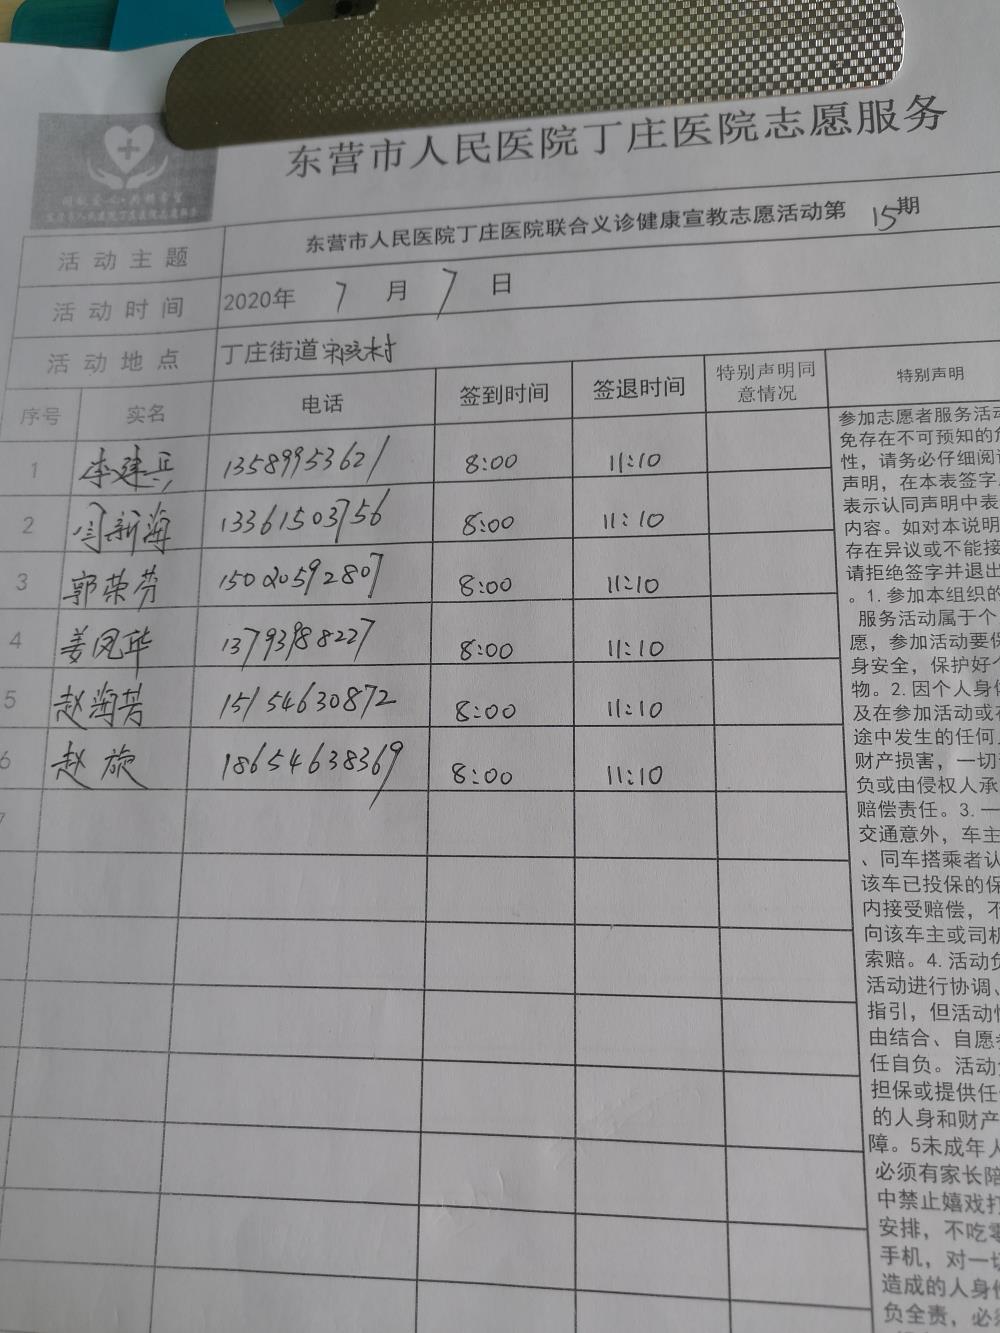 东营市人民医院丁庄医院志愿服务
活动主题 东营市人民医院丁庄医院联合义诊健康宣教志愿活动第15期
活动时间 2020年 7 月 7 日
活动地点 丁庄街道 村
序号 实名 电话 签到时间 签退时间 特别声明同意情况 特别声明
1 李建兵 13589953621 8:00 11:10
2 闫新海 13361503756 8:00 11:10
3 郭荣芬 15020592807 8:00 11:10
4 姜凤华 13793988227 8:00 11:10
5 赵海芳 15154630872 8:00 11:10
6 赵旋 18654638369 8:00 11:10
7
参加志愿者服务活动
免存在不可预知的危
性，请务必仔细阅读
声明，在本表签字
表示认同声明中表
内容。如对本说明
存在异议或不能接
请拒绝签字并退出
。1.参加本组织的
服务活动属于个
愿，参加活动要保
身安全，保护好个
物。2.因个人身体
及在参加活动或在
途中发生的任何
财产损害，一切
负或由侵权人承
赔偿责任。3.一
交通意外，车主
、同车搭乘者认
该车已投保的保
内接受赔偿，不
向该车主或司机
索赔。4.活动负
活动进行协调、
指引，但活动
由结合、自愿
任自负。活动
担保或提供任
的人身和财产
障。5未成年人
必须有家长陪
中禁止嬉戏打
安排，不吃零
手机，对一切
造成的人身伤
负全责，必须